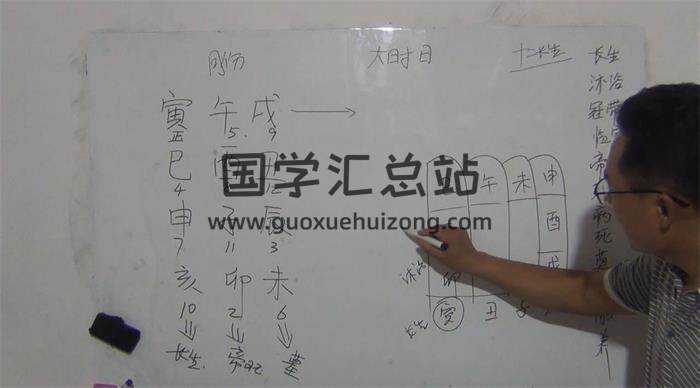 月份 大时日 十二长生
寅 午 戌
正 5 9
巳 酉 丑
4
申 子 辰
7 11 3
亥 卯 未
10 2 6
长生 帝旺 墓
午 未 申
酉
沐浴 卯 戌
长生 寅 丑 子
长生
沐浴
冠带
临官
帝
病
死
墓
养
国学汇总站
www.guoxuehuizong.com